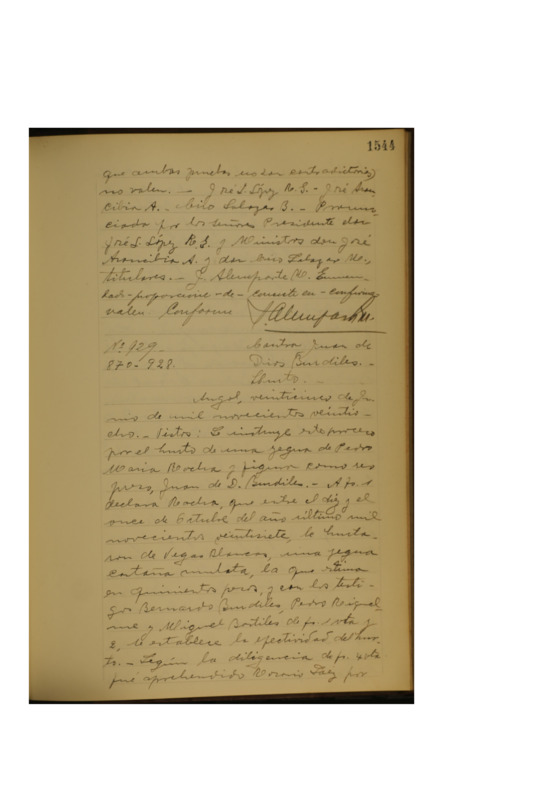 1544
que ambas pruebas no son contradictorias
no valen. — José L. López R. S. - José Aran
cibia A. - Miro Salazar B. - Pronun-
ciada por los señores Presidente don
José L. López R. S. y Ministros don José
Arancibia A. y don Salazar
titulares. — J. Alemparte R. Enmen-
dado - proporcione - de - consiste en - conforme
valen. Conforme J. Alemparte R.
No. 929.
870-928.
Contra Juan de
Dios Burdiles. -
Hurto. -
Angol, veinticinco de Ju-
nio de mil novecientos veintio-
cho. - Vistos: Se instruye este proceso
por el hurto de una yegua de Pedro
Maria Rocha y figura como reo
preso, Juan de D. Burdiles. - A fs. 1
declara Rocha, que entre el diez y el
once de Octubre del año último mil
novecientos veintisiete, le hurta-
ron de Vegas Blancas, una yegua
castaña mulata, la que estima
en quinientos pesos, y con los testi-
gos Bernardo Burdiles, Pedro
y Miguel Bastiles de fs. 1 vta y
2, se establece la efectividad del hur-
to. - Según la diligencia de fs. 4 vta
fué aprehendido Rosario Paez por